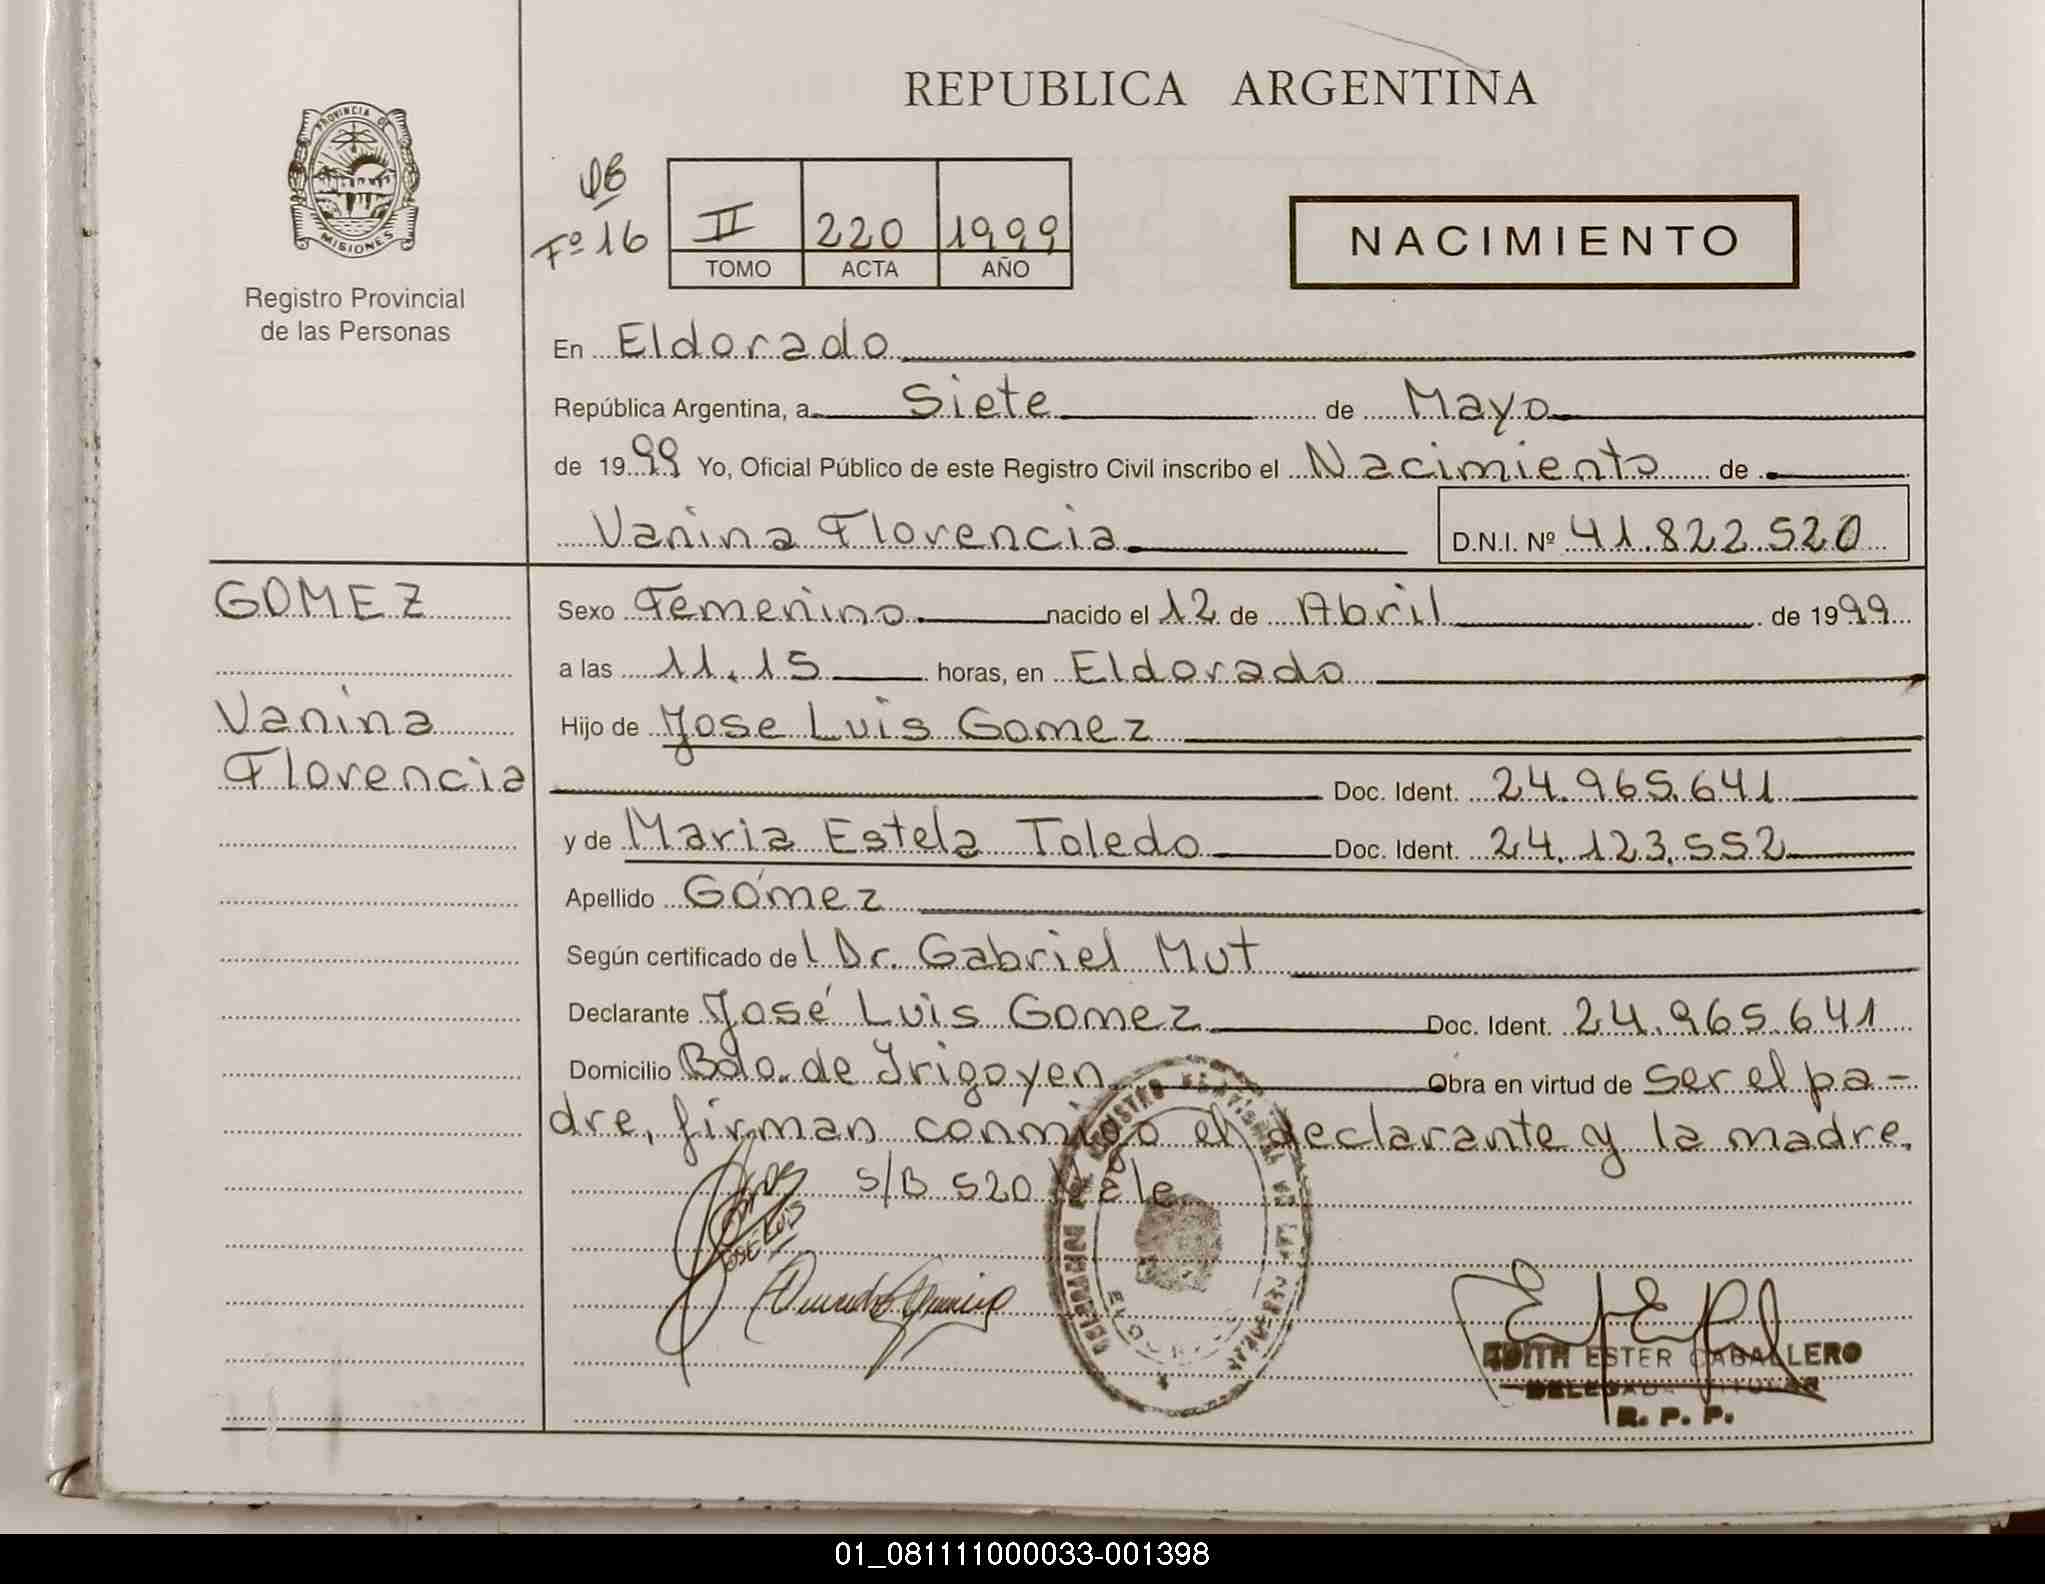 REPUBLICA ARGENTINA
PROVINCIA DE
MISIONES
Registro Provincial
de las Personas
Fº 16
II 220 1999
TOMO ACTA AÑO
NACIMIENTO
En Eldorado
República Argentina, a Siete de Mayo
de 1999 Yo, Oficial Público de este Registro Civil inscribo el Nacimiento de
Vanina Florencia D.N.I. Nº 41.822.520
GOMEZ
Vanina
Florencia
Sexo Femenino nacido el 12 de Abril de 1999
a las 11.15 horas, en Eldorado
Hijo de Jose Luis Gomez
Doc. Ident. 24.965.641
y de Maria Estela Toledo Doc. Ident. 24.123.552
Apellido Gómez
Según certificado del Dr. Gabriel Mut
Declarante José Luis Gomez Doc. Ident. 24.965.641
Domicilio Bdo. de Irigoyen Obra en virtud de ser el pa-
dre, firman conmigo el declarante y la madre.
S/B 520 Vale
JOSE LUIS
EDITH ESTER CABALLERO
DELEGADA TITULAR
R. P. P.
01_081111000033-001398